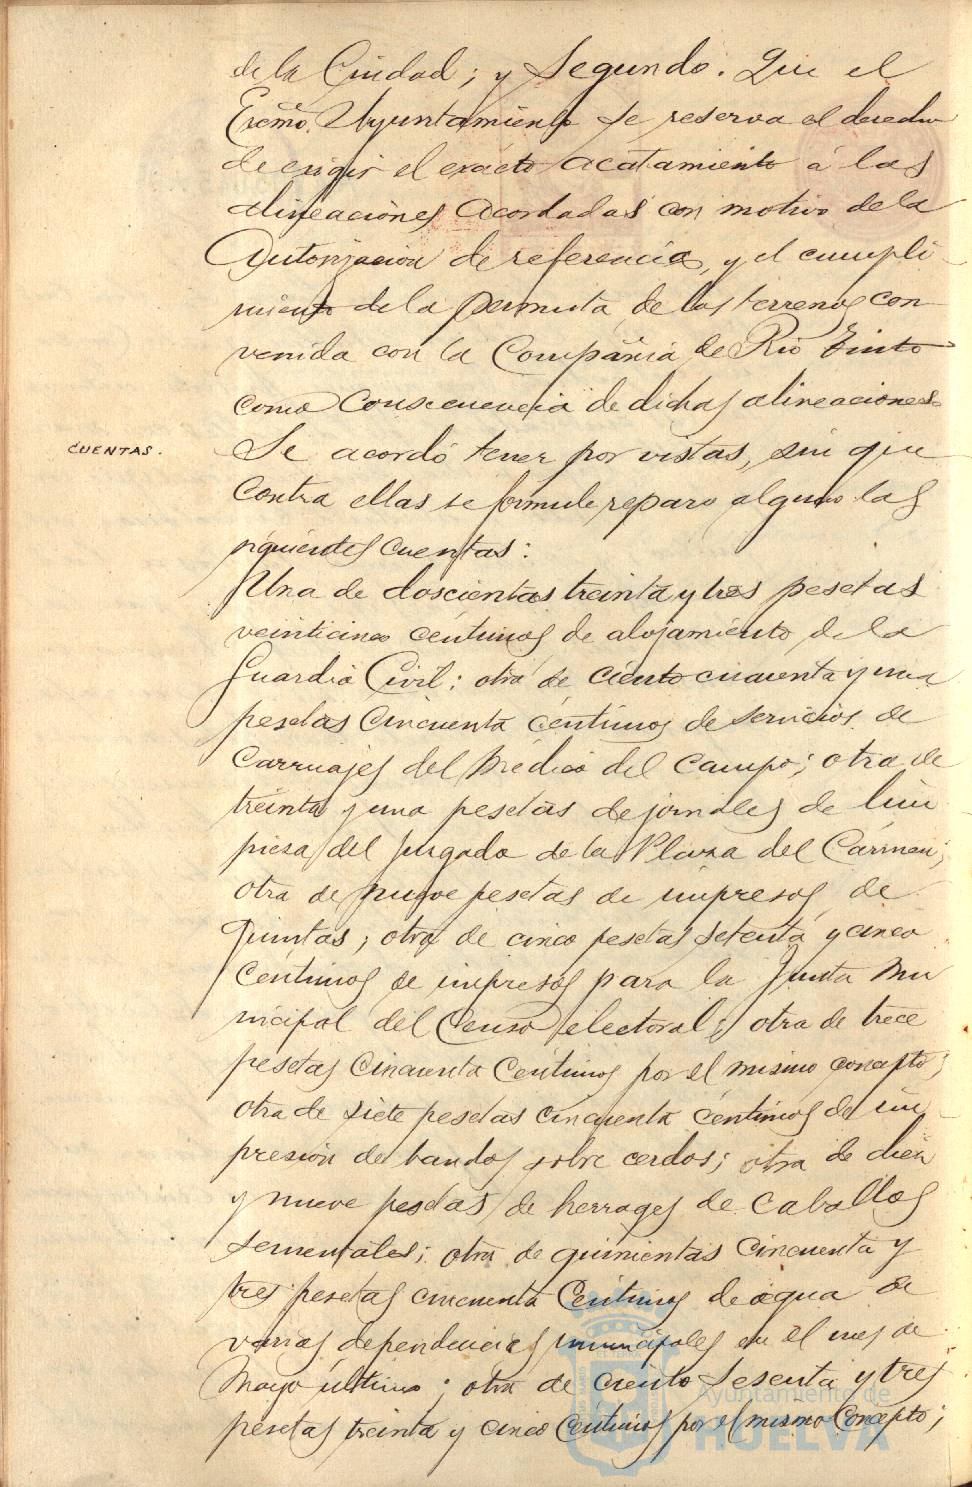 de la Ciudad; y Segundo. Que el
Excmo. Ayuntamiento se reserva el derecho
de exigir el exácto acatamiento á las
alineaciónes acordadas con motivo de la
Autorización de referencia, y el cumpli-
miento de la permuta de los terrenos con-
venida con la Compañia de Rio Tinto
como consecuencia de dichas alineaciones.
CUENTAS.
Se acordó tener por vistas, sin que
contra ellas se formule reparo alguno las
siguientes cuentas:
Una de doscientas treinta y tres pesetas
veinticinco céntimos de alojamiento de la
Guardia Civil: otra de ciento cincuenta y una
pesetas cincuenta céntimos de servicios de
carruajes del Médico del Campo; otra de
treinta y una pesetas de jornales de lim
pieza del Juzgado de la Plaza del Cármen;
otra de nueve pesetas de impresos de
Quintas; otra de cinco pesetas setenta y cinco
céntimos de impresos para la Junta Mu
nicipal del Censo electoral; otra de trece
pesetas cincuenta céntimos por el mismo concepto;
otra de siete pesetas cincuenta céntimos de im
presión de bandos sobre cerdos; otra de diez
y nueve pesetas de herrages de caballos
sementales; otra de quinientas cincuenta y
tres pesetas cincuenta céntimos de agua de
varias dependencias municipales en el mes de
Mayo último; otra de ciento sesenta y tres
pesetas treinta y cinco céntimos por el mismo concepto;
Ayuntamiento de
HUELVA